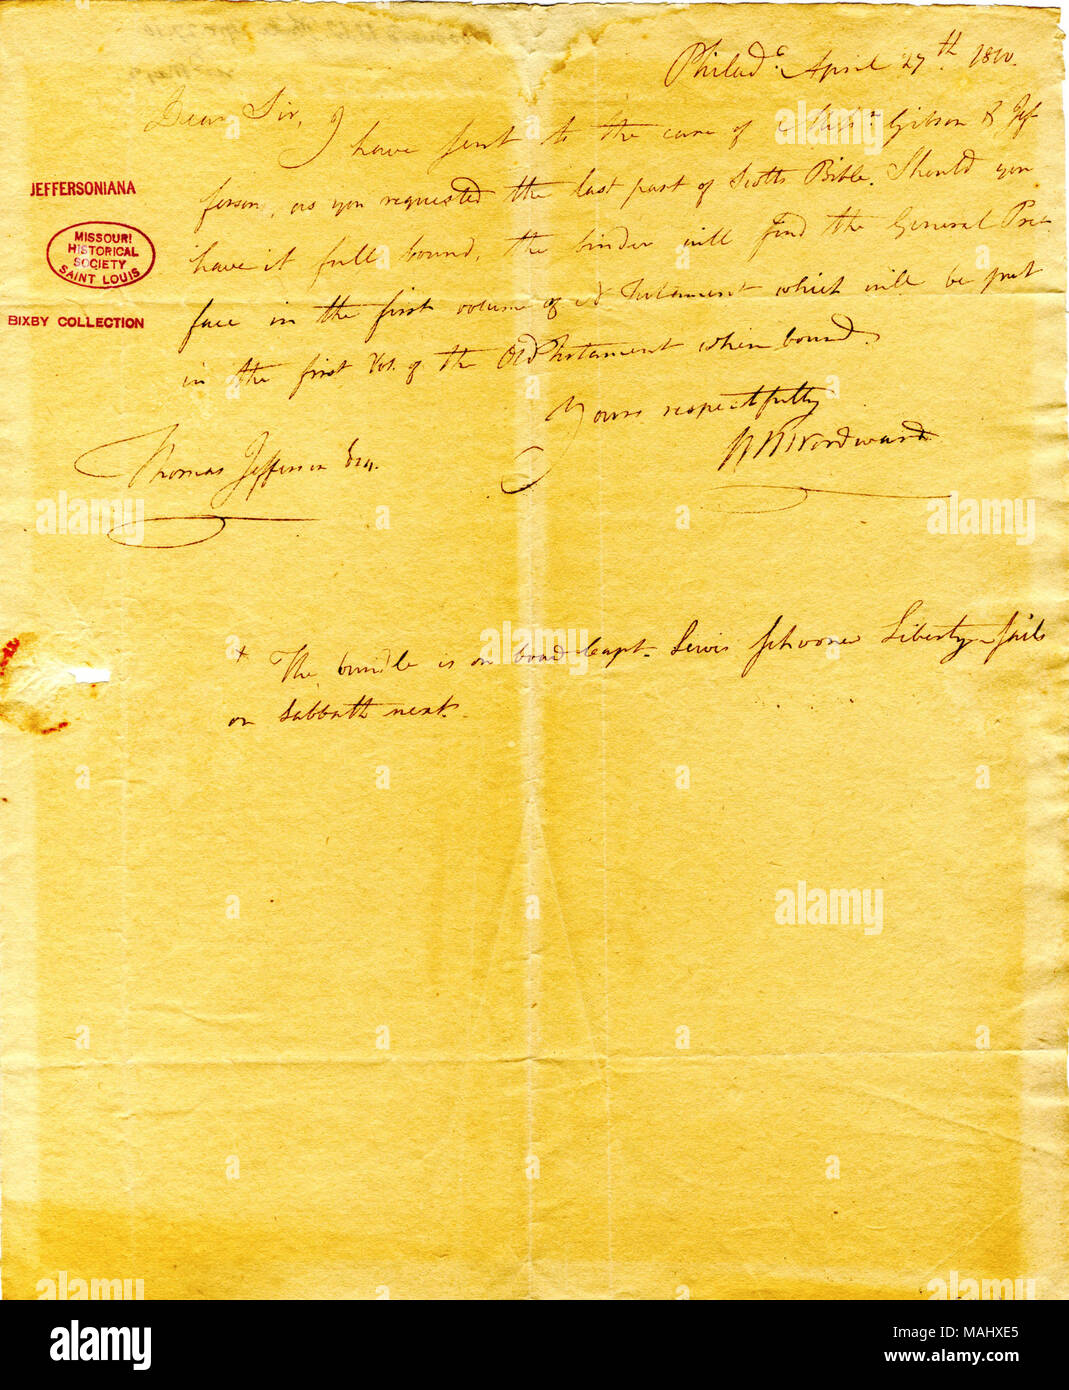 Philad.ᵃ April 27th 1810.
Dear Sir,
I have sent to the care of Mess.rs Gibson & Jef-
JEFFERSONIANA
ferson, as you requested the last part of Scotts Bible. Should you
MISSOURI
HISTORICAL
SOCIETY
SAINT LOUIS
have it full bound, the binder will find the General Pre-
BIXBY COLLECTION
face in the first volume of N Testament which will be put
in the first Vol. of the Old Testament when bound.
Yours respectfully
W W Woodward
Thomas Jefferson Esq.
+ The bundle is on board Capt. Lewis schooner Liberty - sails
on Sabbath next.
alamy
Image ID: MAHXE5
www.alamy.com